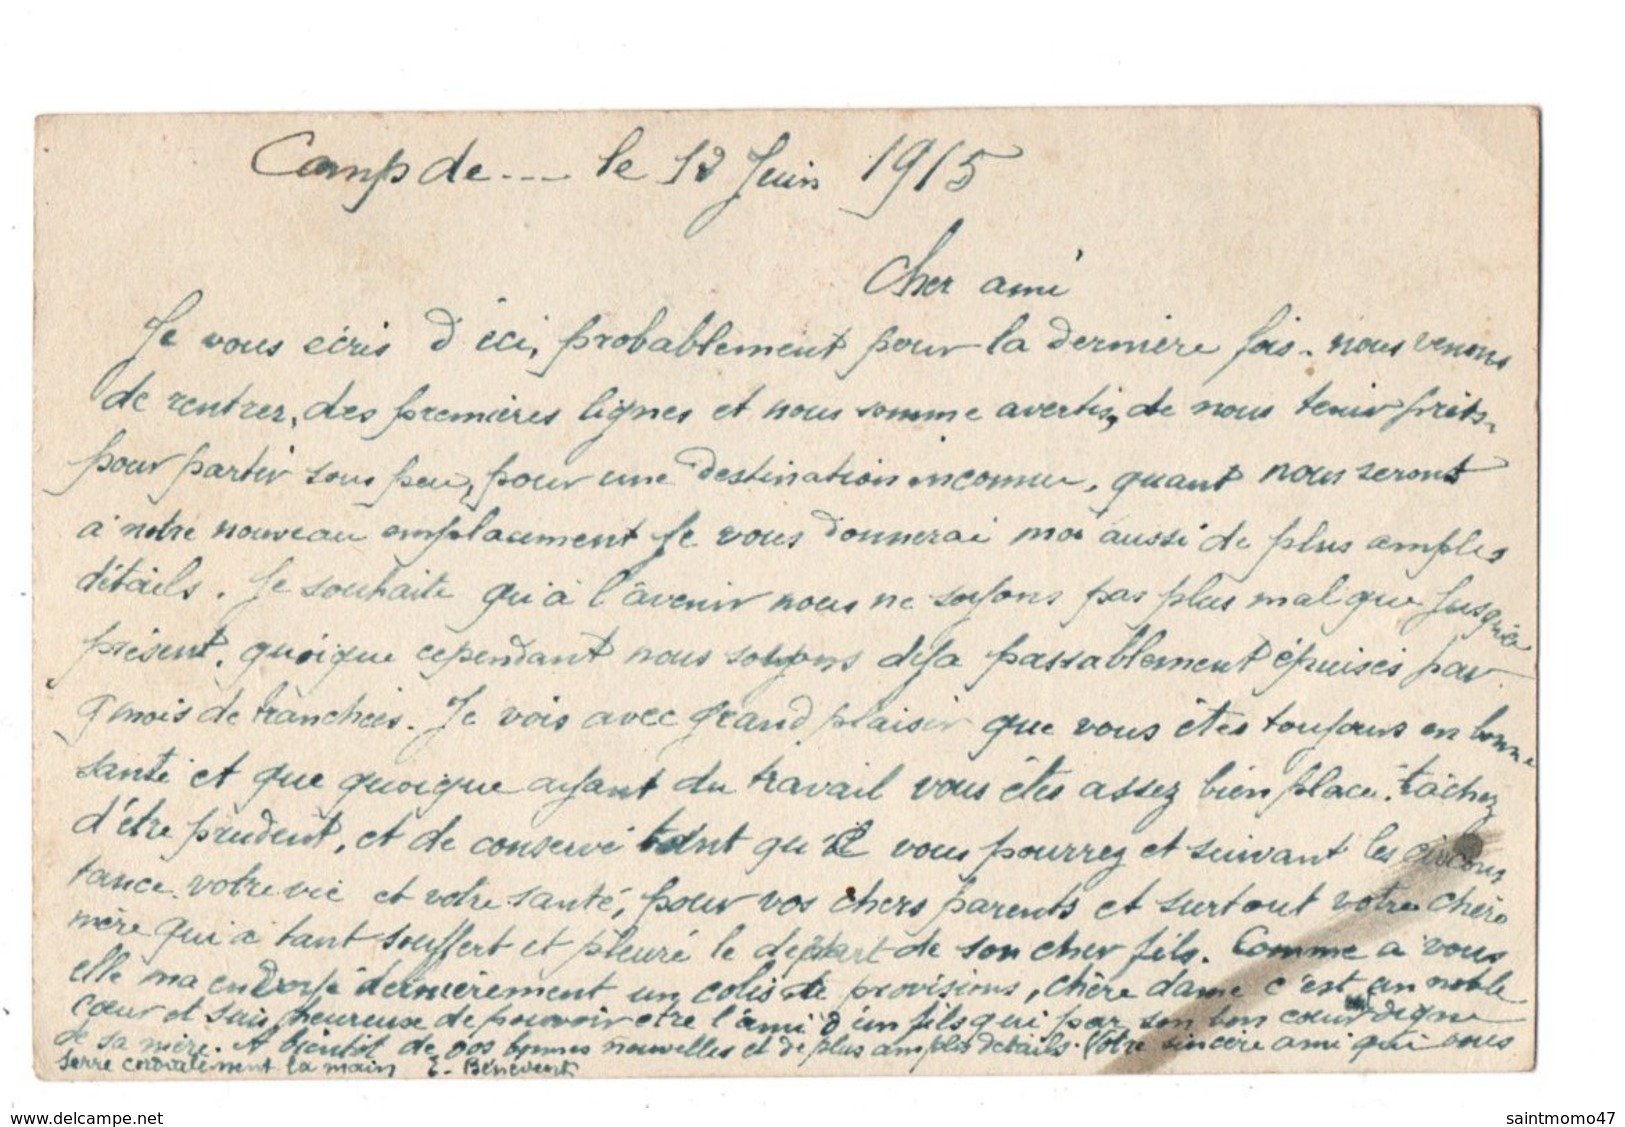 Camp de --- le 12 Juin 1915
Cher ami
Je vous écris d'ici, probablement pour la dernière fois. nous venons
de rentrer, des premières lignes et nous somme avertis, de nous tenir prêts.
pour partir sous peu, pour une destination inconnu, quant nous seront
à notre nouveau emplacement Je vous donnerai moi aussi de plus amples
détails. Je souhaite qu'à l'avenir nous ne soyons pas plus mal que Jusqu'à
présent, quoique cependant nous soyons deja passablement épuisés par
9 mois de tranchées. Je vois avec grand plaisir que vous êtes toujours en bonne
santé et que quoique ayant du travail vous êtes assez bien place. tâchez
d'être prudent, et de conservé tant qu'il vous pourrez et suivant les circons
tance votre vie et votre santé, pour vos chers parents et surtout votre chère
mère qui a tant souffert et pleuré le départ de son cher fils. Comme a vous
elle ma dernièrement un colis de provisions, chère dame c'est un noble
cœur et suis heureuse de pouvoir etre l'ami d'un fils qui par son bon cœur digne
de sa mère. A bientôt de vos bonnes nouvelles et de plus amples details. Votre sincère ami qui vous
serre cordialement la main E. Bénévent
www.delcampe.net
saintmomo47